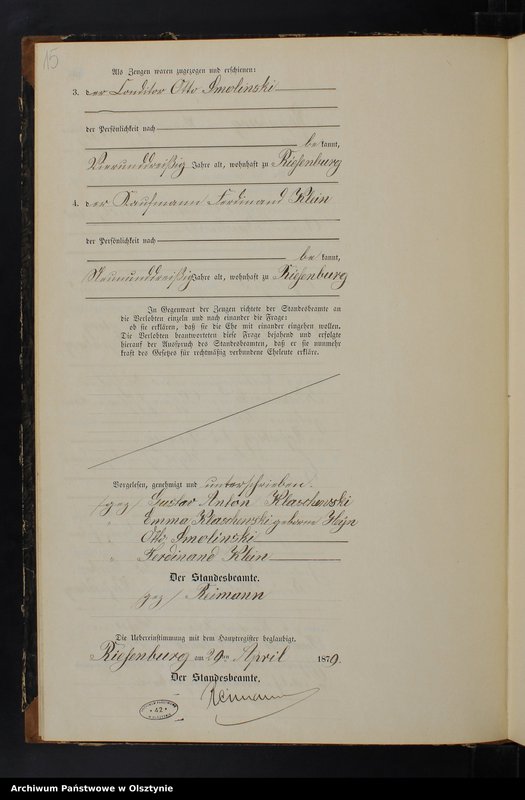 15
Als Zeugen waren zugezogen und erschienen:
3. der Conditor Otto Smolinski
der Persönlichkeit nach
be kannt,
Vierunddreißig Jahre alt, wohnhaft zu Riesenburg
4. der Kaufmann Ferdinand Klein
der Persönlichkeit nach
be kannt,
Neununddreißig Jahre alt, wohnhaft zu Riesenburg
In Gegenwart der Zeugen richtete der Standesbeamte an
die Verlobten einzeln und nach einander die Frage:
ob sie erklären, daß sie die Ehe mit einander eingehen wollen.
Die Verlobten beantworteten diese Frage bejahend und erfolgte
hierauf der Ausspruch des Standesbeamten, daß er sie nunmehr
kraft des Gesetzes für rechtmäßig verbundene Eheleute erkläre.
Vorgelesen, genehmigt und unterschrieben.
(gez) Gustav Anton Klaschewski
" Emma Klaschewski geborne
" Otto Smolinski
" Ferdinand Klein
Der Standesbeamte.
gez/ Reimann
Die Uebereinstimmung mit dem Hauptregister beglaubigt.
Riesenburg am 29ten April 1879.
Der Standesbeamte.
Reimann
* 42 *
Archiwum Państwowe w Olsztynie